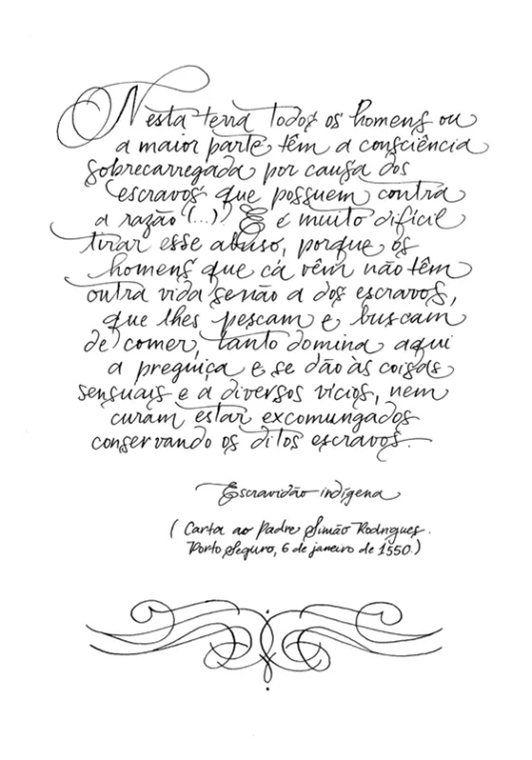 Nesta terra todos os homens ou
a maior parte têm a consciência
sobrecarregada por causa dos
escravos que possuem contra
a razão (...). E é muito difícil
tirar esse abuso, porque os
homens que cá vêm não têm
outra vida senão a dos escravos,
que lhes pescam e buscam
de comer, tanto domina aqui
a preguiça e se dão às coisas
sensuais e a diversos vícios, nem
curam estar excomungados
conservando os ditos escravos.
Escravidão indígena
( Carta ao Padre Simão Rodrigues.
Porto Seguro, 6 de janeiro de 1550.)